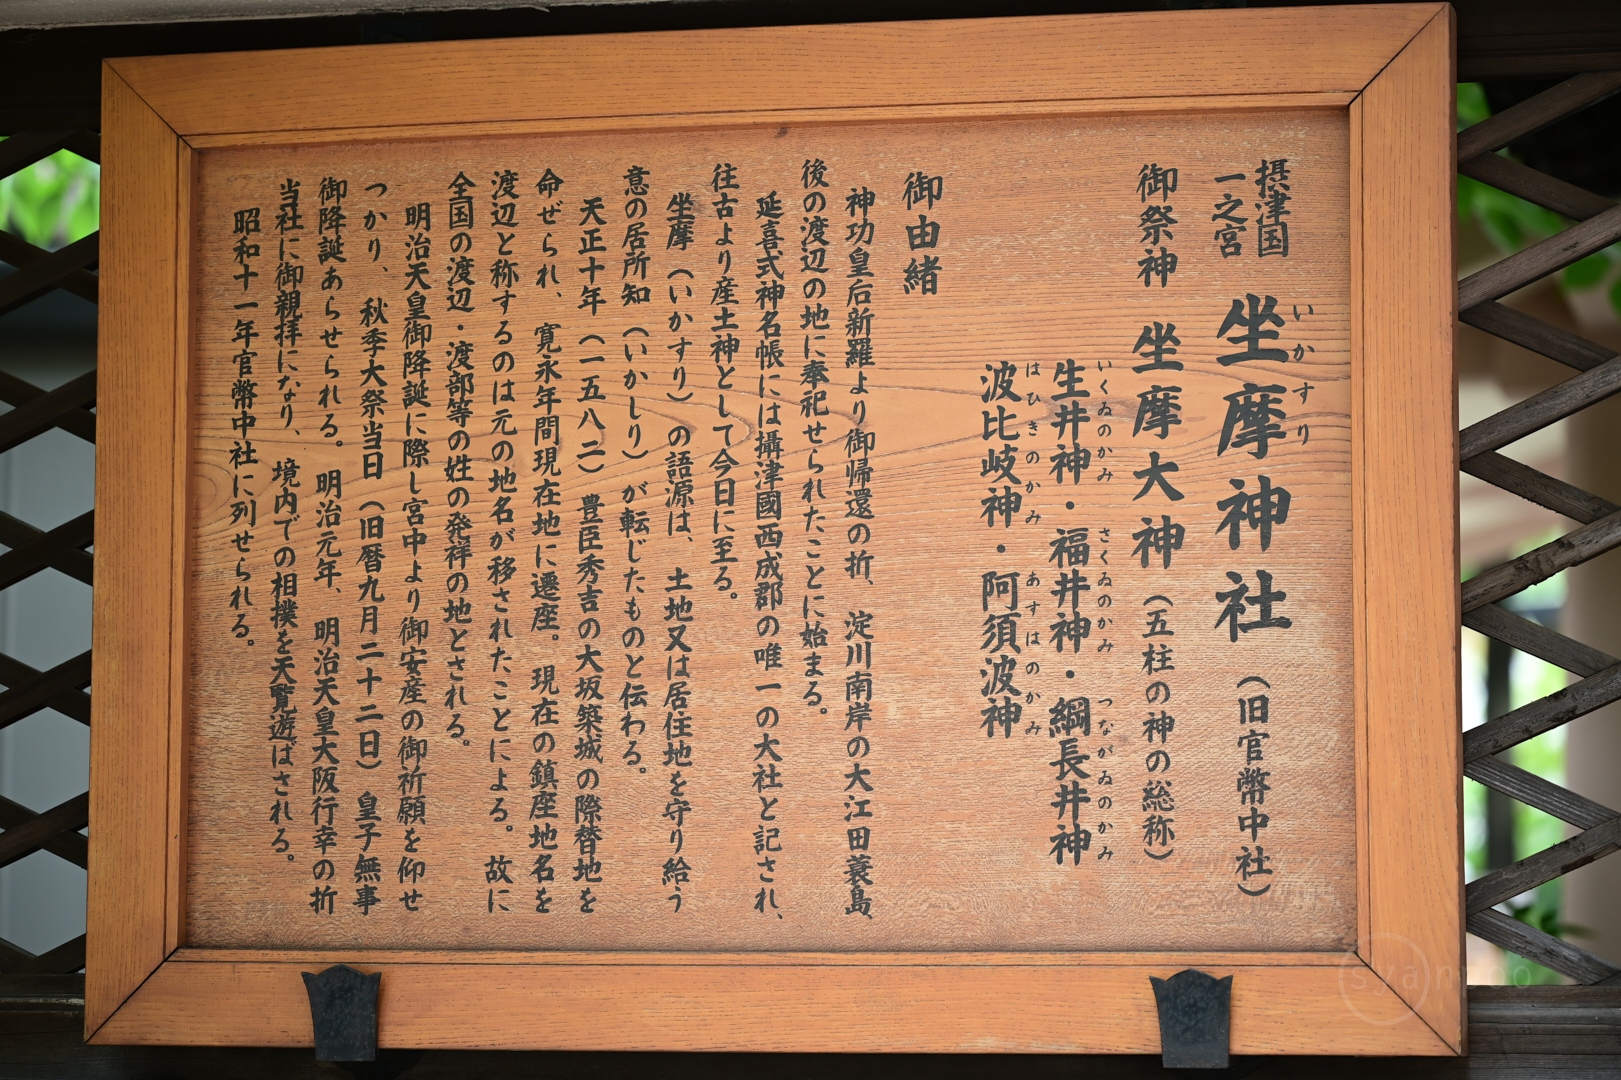 摂津国
一之宮
坐摩神社（旧官幣中社）
いかすり
御祭神　坐摩大神（五柱の神の総称）
いくゐのかみ　さくゐのかみ　つながゐのかみ
生井神・福井神・綱長井神
はひきのかみ　あすはのかみ
波比岐神・阿須波神
御由緒
神功皇后新羅より御帰還の折、淀川南岸の大江田蓑島、
後の渡辺の地に奉祀せられたことに始まる。
延喜式神名帳には攝津國西成郡の唯一の大社と記され、
往古より産土神として今日に至る。
坐摩（いかすり）の語源は、土地又は居住地を守り給う
意の居所知（いかしり）が転じたものと伝わる。
天正十年（一五八二）豊臣秀吉の大坂築城の際替地を
命ぜられ、寛永年間現在地に遷座。現在の鎮座地名を
渡辺と称するのは元の地名が移されたことによる。故に
全国の渡辺・渡部等の姓の発祥の地とされる。
明治天皇御降誕に際し宮中より御安産の御祈願を仰せ
つかり、秋季大祭当日（旧暦九月二十二日）皇子無事
御降誕あらせられる。明治元年、明治天皇大阪行幸の折
当社に御親拝になり、境内での相撲を天覧遊ばされる。
昭和十一年官幣中社に列せられる。
syanroo